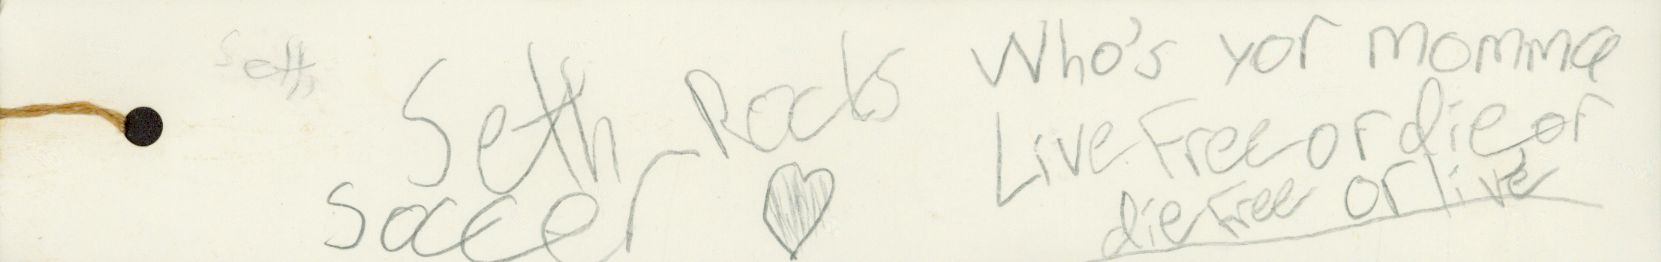 Seth
Seth Rocks
Soccer
Who's yor momma
Live Free or die or
die Free or live